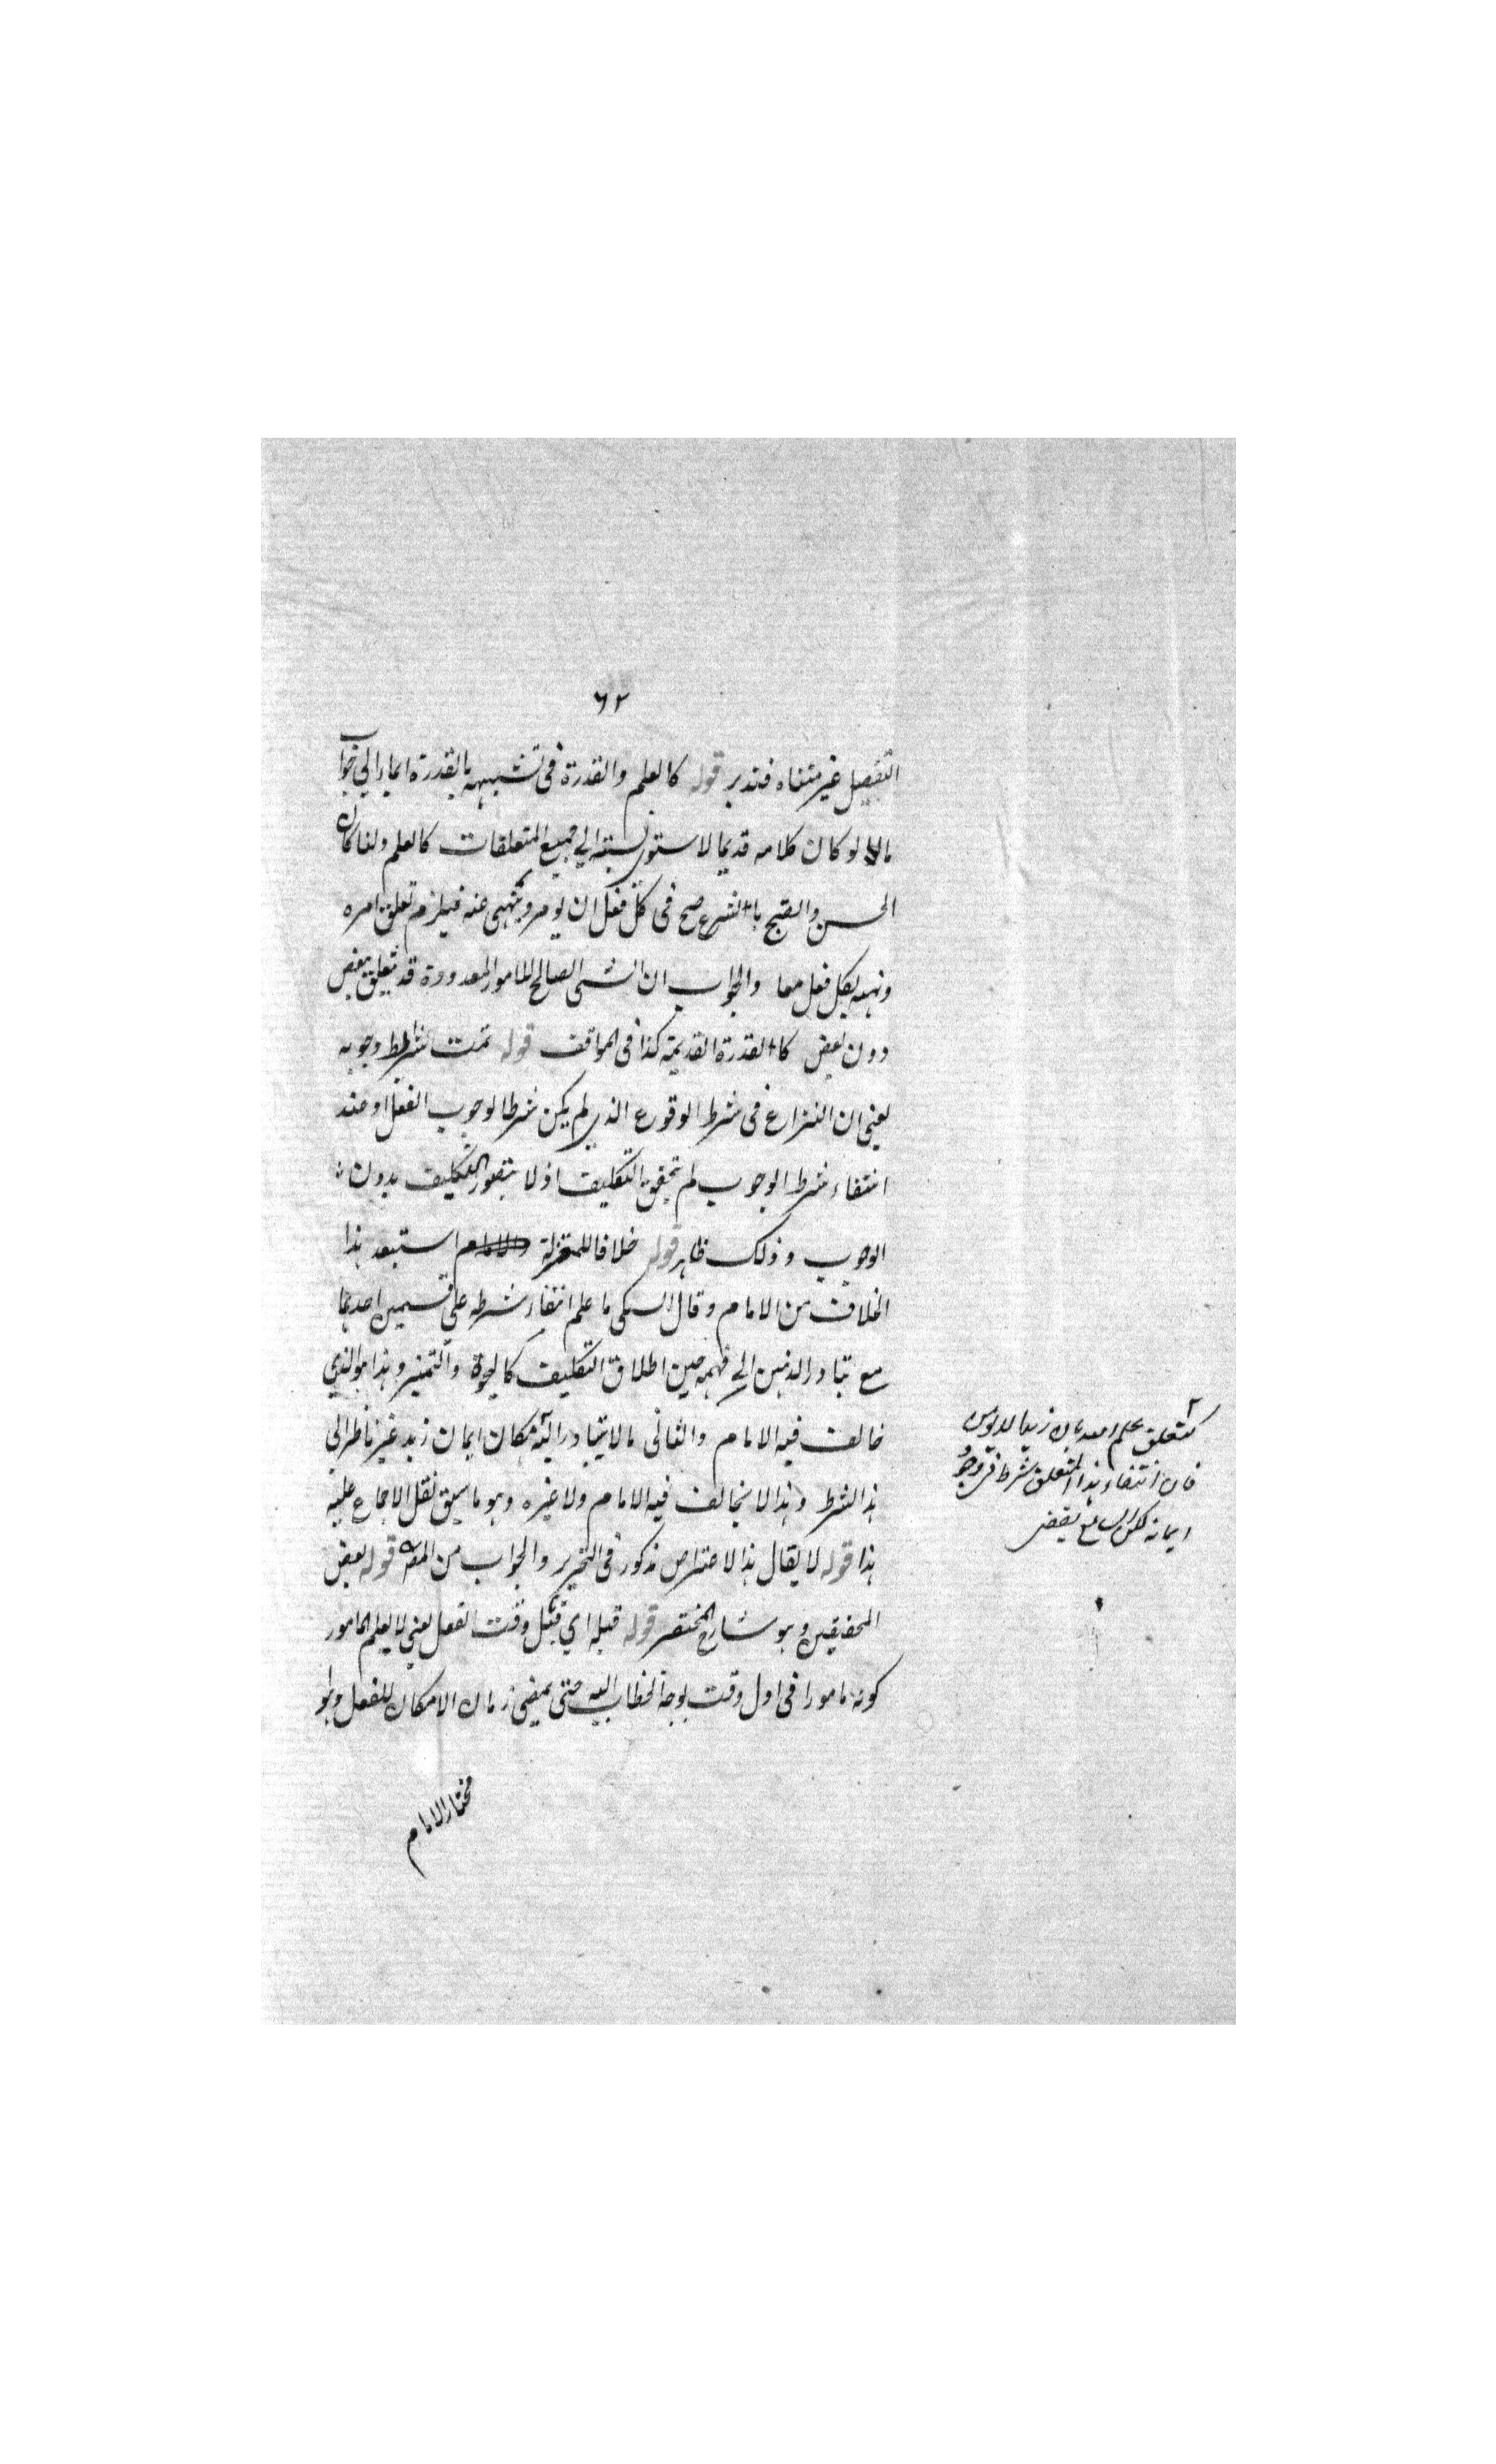 ٦٢
التفصيل غير متناه فتدبر قوله كالعلم والقدرة في تشبيهه بالقدرة ايماء الى جواب
ما لو كان كلامه قديما لاستوى نسبته الى جميع المتعلقات كالعلم ولما كان
الحسن والقبح بالشرع صح في كل فعل ان يومر وينهى عنه فيلزم تعلق امره
ونهيه بكل فعل معا والجواب ان الشئ الصالح للامور المعدودة قد يتعلق ببعض
دون بعض كالقدرة القديمة كذا في المواقف قوله تمت شرائط وجوبه
يعني ان النزاع في شرط الوقوع الذي لم يكن شرطا لوجوب الفعل اذ عند
انتفاء شرط الوجوب لم يتحقق التكليف اذ لا يتصور التكليف بدون
الوجوب وذلك ظاهر قوله خلافا للمعتزلة والامام استبعد هذا
الخلاف من الامام وقال السبكي ما علم انتفاء شرطه على قسمين احدهما
مع تبادر الذهن الى فهمه حين اطلاق التكليف كالحيوة والتميز وهذا هو الذي
خالف فيه الامام والثاني ما لا يتبادر اليه كان ايمان زيد غير ناظر الى
هذا الشرط وهذا لا يخالف فيه الامام ولا غيره وهو ما سبق نقل الاجماع عليه
هذا قوله لا يقال هذا الاعتراض مذكور في التحرير والجواب من المص قوله بعض
المحققين وهو شارح المختصر قوله قبله اي قبل وقت الفعل يعني لا يعلم المامور
كونه مامورا في اول وقت توجه الخطاب اليه حتى يمضي زمان الامكان للفعل وهو
مختار الامام
كتعلق علم الله بان زيدا لا يومن
فان انتفاء هذا المتعلق شرط في وجود
ايمانه لكن السامع يقضي